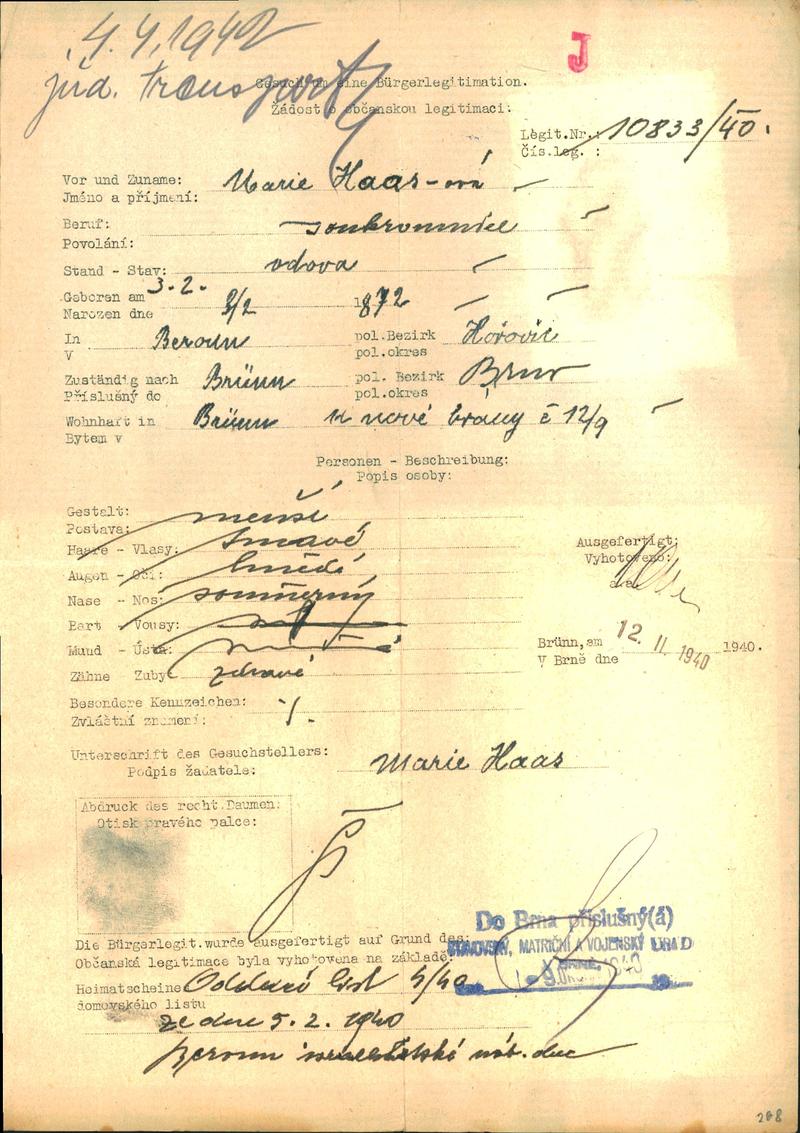 4.4.1942
J
jüd. Transport
Gesuch um eine Bürgerlegitimation.
Žádost o občanskou legitimaci.
Legit.Nr.: 10833/40.
Čís.leg. :
Vor und Zuname: Marie Haas-ová
Jméno a příjmení:
Beruf: soukromnice
Povolání:
Stand - Stav: vdova
3.2.
Geboren am 3/2 1872
Narozen dne
In Beroun pol.Bezirk Hořovic
V pol.okres
Zuständig nach Brünn pol. Bezirk Brno
Příslušný do pol.okres
Wohnhaft in Brünn u nové brány č 12/9
Bytem v
Personen - Beschreibung:
Popis osoby:
Gestalt: menší
Postava:
Haare - Vlasy: tmavé
Augen - Oči: hnědé
Nase - Nos: souměrný
Bart - Vousy:
Mund - Ústa:
Zähne - Zuby: zdravé
Ausgefertigt:
Vyhotoveno:
Brünn, am 12. II. 1940 1940.
V Brně dne
Besondere Kennzeichen: -/.
Zvláštní znamení:
Unterschrift des Gesuchstellers: Marie Haas
Podpis žadatele:
Abdruck des recht.Daumen:
Otisk pravého palce:
Do Brna příslušný(á)
DOMOVSKÝ, MATRIČNÍ A VOJENSKÝ ÚŘAD
Die Bürgerlegit.wurde ausgefertigt auf Grund des:
Občanská legitimace byla vyhotovena na základě:
Heimatscheine Oddací list 4/40
domovského listu
ze dne 5.2.1940
Beroun israelitská náb. obec
208